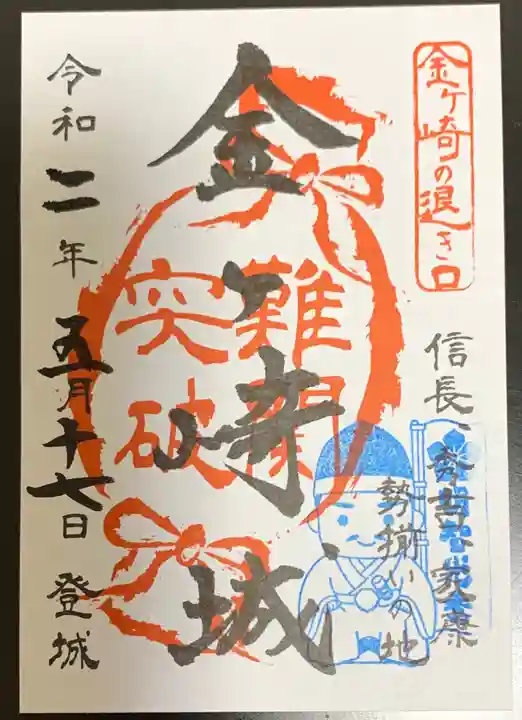 金ヶ崎の退き口
信長、秀吉、家康
勢揃いの地
金ヶ崎城
難関
突破
令和二年五月十七日 登城